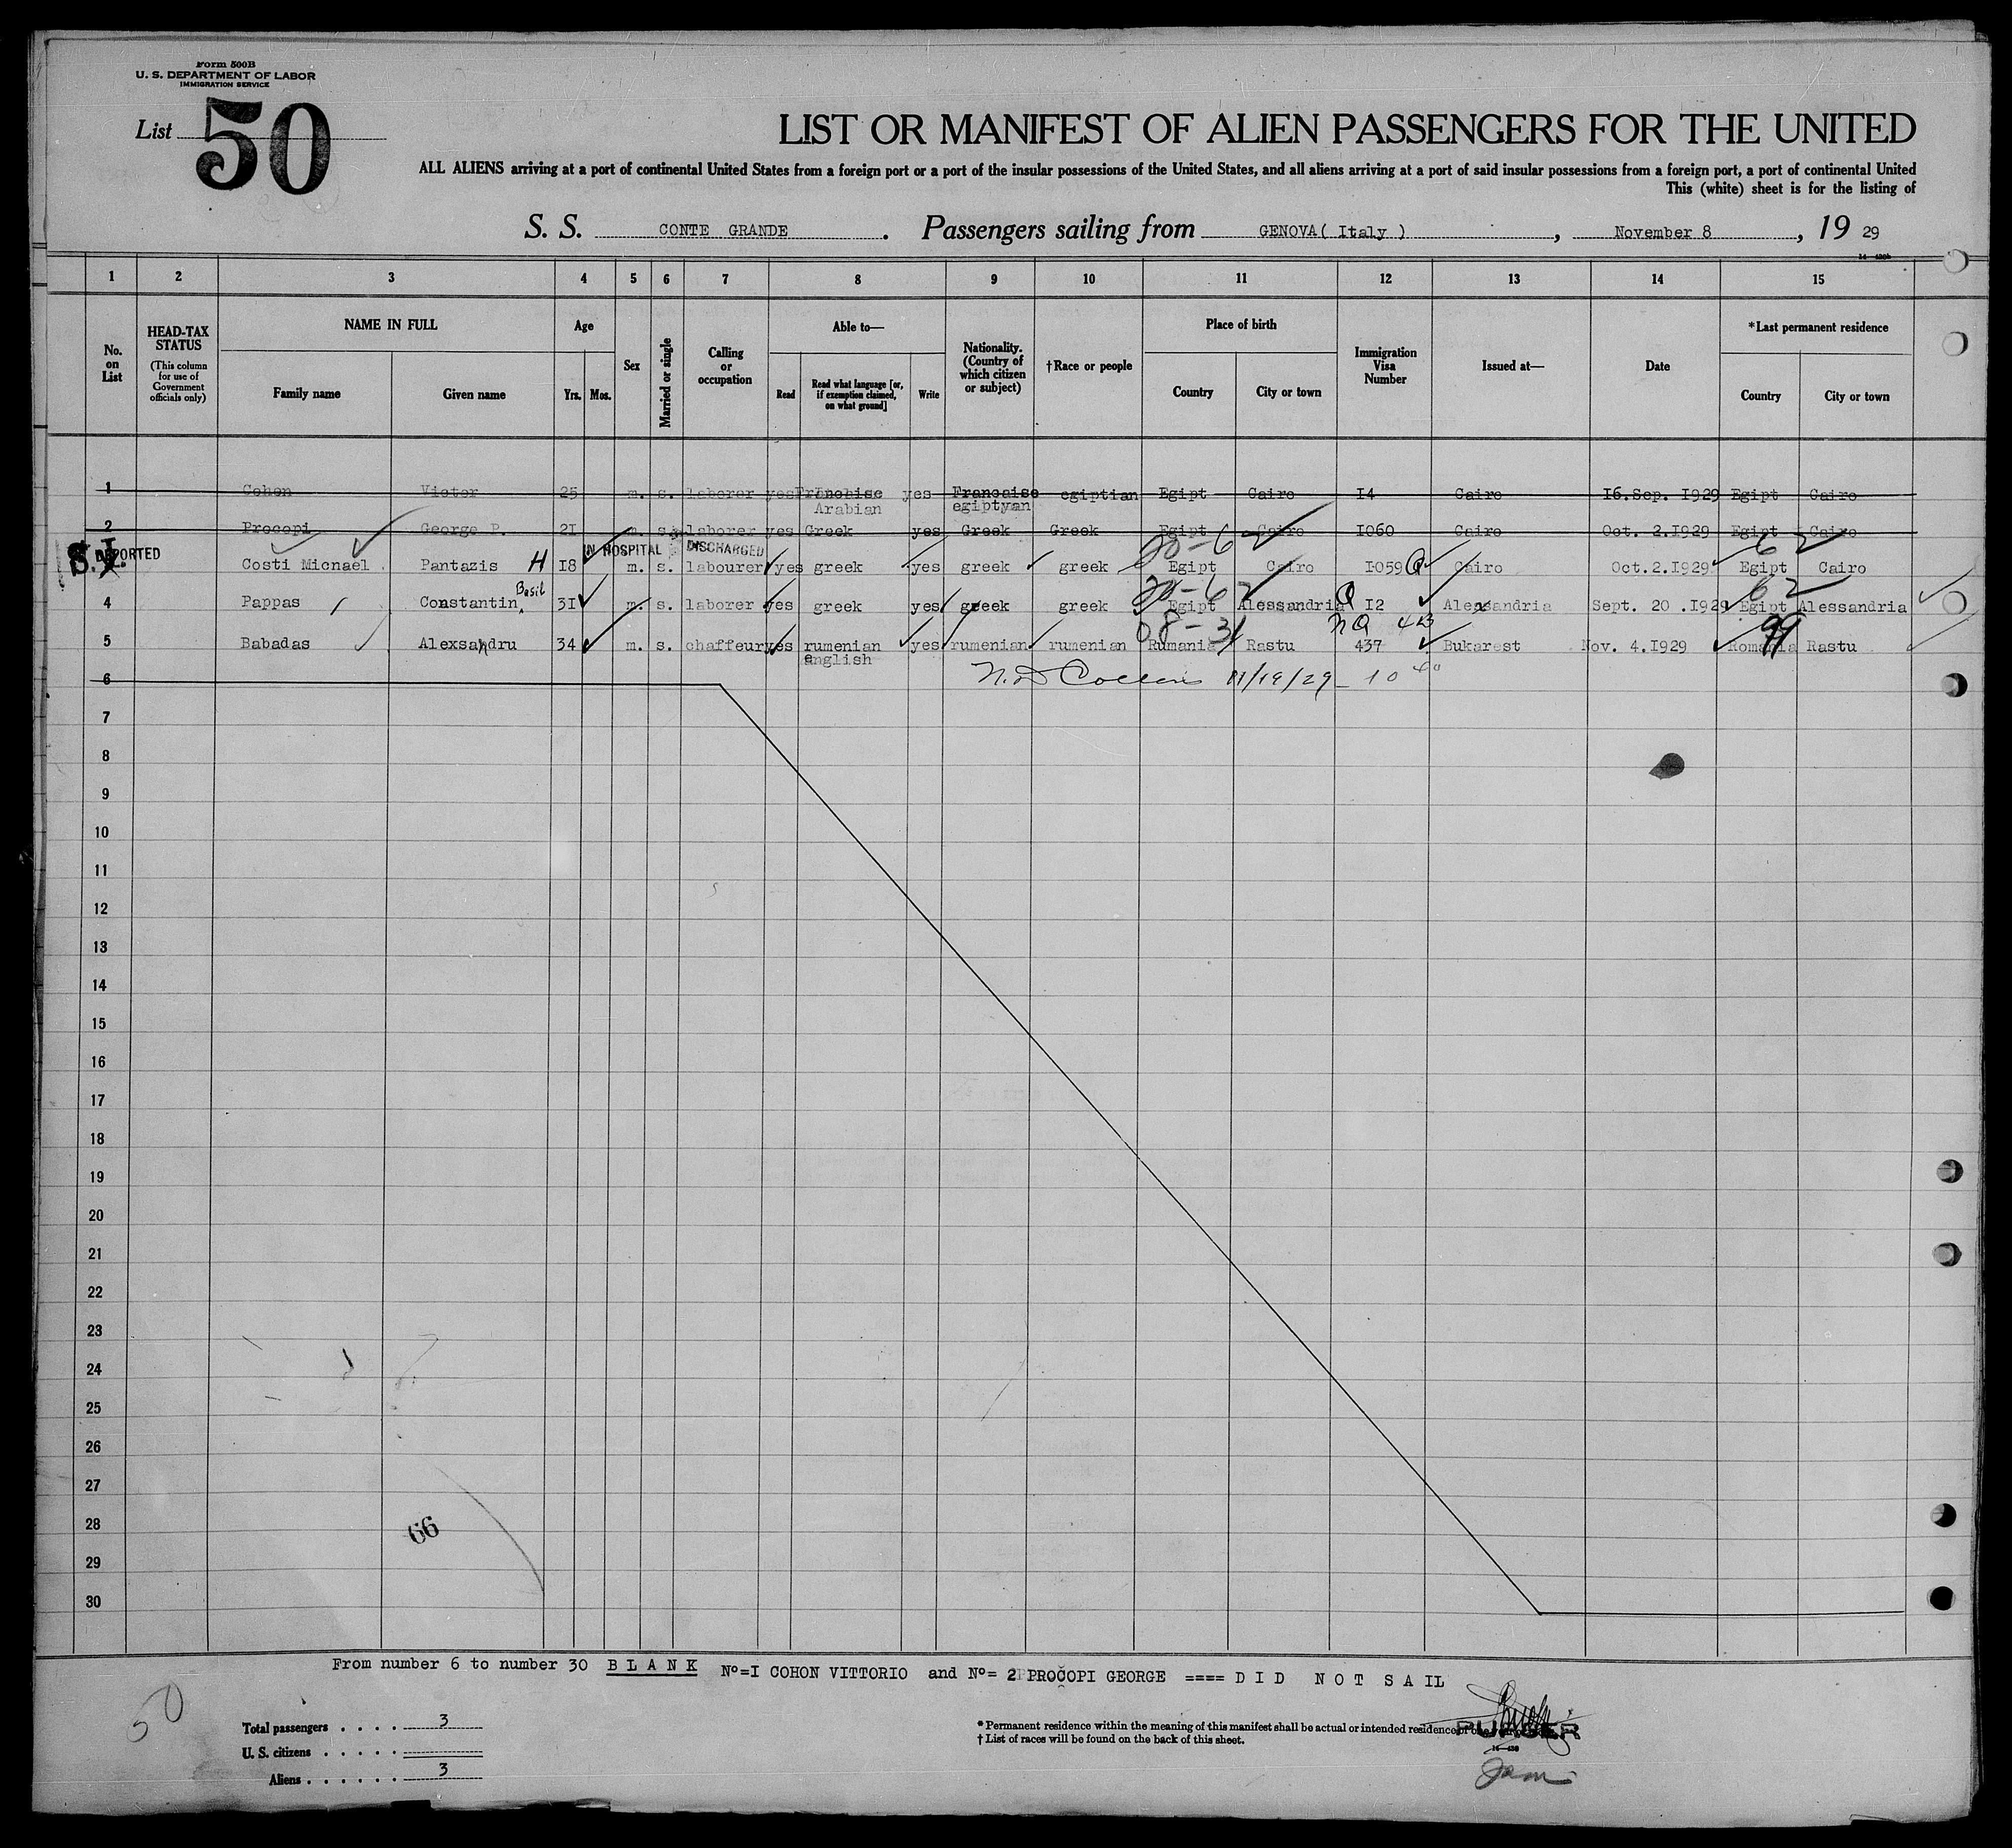 Form 500B
U. S. DEPARTMENT OF LABOR
IMMIGRATION SERVICE
List 50
LIST OR MANIFEST OF ALIEN PASSENGERS FOR THE UNITED
ALL ALIENS arriving at a port of continental United States from a foreign port or a port of the insular possessions of the United States, and all aliens arriving at a port of said insular possessions from a foreign port, a port of continental United
This (white) sheet is for the listing of
S. S. CONTE GRANDE. Passengers sailing from GENOVA( Italy ), November 8, 19 29
1 2 3 4 5 6 7 8 9 10 11 12 13 14 15
No. on List
HEAD-TAX STATUS (This column for use of Government officials only)
NAME IN FULL
Family name Given name
Age
Yrs. Mos.
Sex
Married or single
Calling or occupation
Able to—
Read Read what language [or, if exemption claimed, on what ground] Write
Nationality. (Country of which citizen or subject)
†Race or people
Place of birth
Country City or town
Immigration Visa Number
Issued at—
Date
*Last permanent residence
Country City or town
1 Cohon Victor 25 m. s. laborer yes Franchise yes Francaise egiptian Egipt Cairo I4 Cairo I6.Sep. I929 Egipt Cairo
Arabian egiptyan
2 Procopi George P. 2I m. s. laborer yes Greek yes Greek Greek Egipt Cairo I060 Cairo Oct. 2.I929 Egipt Cairo
S.I. DEPORTED IN HOSPITAL DISCHARGED 20-6 2 6 2
Costi Micnael Pantazis H I8 m. s. labourer yes greek yes greek greek Egipt Cairo I059 Q Cairo Oct.2.I929 Egipt Cairo
Basil 20-6 2 6 2
4 Pappas Constantin 3I m. s. laborer yes greek yes greek greek Egipt Alessandria Q I2 Alexsandria Sept. 20 .I929 Egipt Alessandria
08-31 NQ 4B 99
5 Babadas Alexsandru 34 m. s. chaffeur yes rumenian yes rumenian rumenian Rumania Rastu 437 Bukarest Nov. 4.I929 Romania Rastu
english
11/19/29 - 10
6
7
8
9
10
11
12
13
14
15
16
17
18
19
20
21
22
23
24
25
26
27
28
29
30
66
From number 6 to number 30 B L A N K Nº=I COHON VITTORIO and Nº= 2 PROCOPI GEORGE ==== D I D N O T S A I L
50
Total passengers . . . . 3
U. S. citizens . . . . .
Aliens . . . . . . 3
* Permanent residence within the meaning of this manifest shall be actual or intended residence of one year or more.
† List of races will be found on the back of this sheet.
PURSER